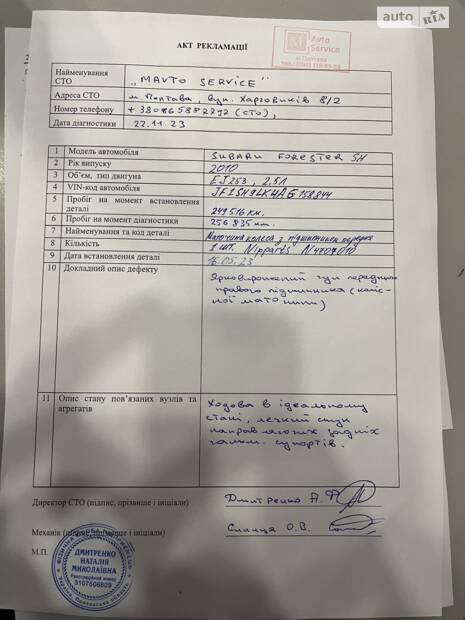 auto RIA
MA Avto Service
м.Полтава
АКТ РЕКЛАМАЦІЇ
Найменування СТО „MAVTO SERVICE"
Адреса СТО м. Полтава, вул. Харчовиків 8/2
Номер телефону (СТО),
Дата діагностики 22.11.23
1 Модель автомобіля SUBARU FORESTER SH
2 Рік випуску 2010
3 Об'єм, тип двигуна EJ253, 2,5л
4 VIN-код автомобіля
5 Пробіг на момент встановлення деталі 249516 км.
6 Пробіг на момент діагностики 256 835 км.
7 Найменування та код деталі Маточина колеса з підшипником передня
8 Кількість 1 шт. Nipparts
9 Дата встановлення деталі 16.05.23
10 Докладний опис дефекту Ярковиражений гул переднього
правого підшипника (коліс-
ної маточини)
11 Опис стану пов'язаних вузлів та агрегатів Ходова в ідеальному
стані, легкий стук
направляючих задніх
гальм. супортів.
Директор СТО (підпис, прізвище і ініціали) Дмитренко
Механік (підпис, прізвище і ініціали) О.В.
М.П.
ДМИТРЕНКО
НАТАЛІЯ
МИКОЛАЇВНА
Реєстраційний номер
3107506809